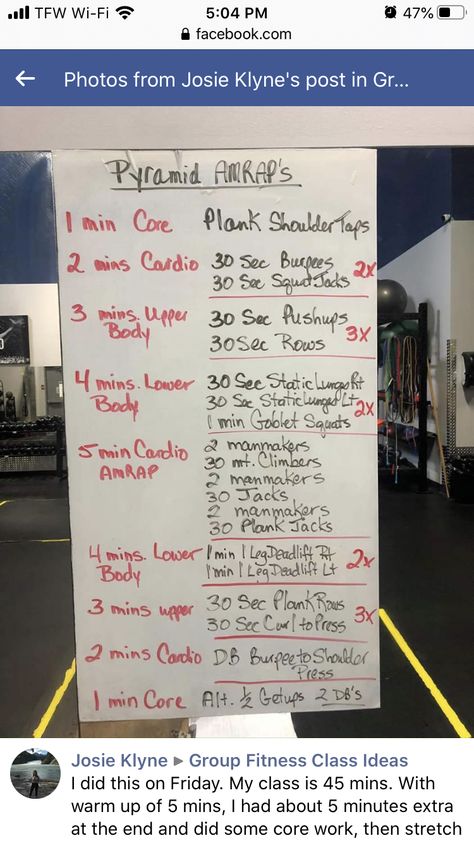 TFW Wi-Fi 5:04 PM 47%
facebook.com
Photos from Josie Klyne's post in Gr...
Pyramid AMRAP's
1 min Core Plank Shoulder Taps
2 mins Cardio 30 Sec Burpees
30 Sec Squat Jacks 2x
3 mins. Upper Body 30 Sec Pushups
30 Sec Rows 3x
4 mins. Lower Body 30 Sec Static Lunges Rt
30 Sec Static Lunges Lt
1 min Goblet Squats 2x
5 min Cardio AMRAP 2 manmakers
30 mt. Climbers
2 manmakers
30 Jacks
2 manmakers
30 Plank Jacks
4 mins. Lower Body 1 min 1 Leg Deadlift Rt
1 min 1 Leg Deadlift Lt 2x
3 mins upper 30 Sec Plank Rows
30 Sec Curl to Press 3x
2 mins Cardio DB Burpee to Shoulder
Press
1 min Core Alt. ½ Getups 2 DB's
Josie Klyne ▸ Group Fitness Class Ideas
I did this on Friday. My class is 45 mins. With
warm up of 5 mins, I had about 5 minutes extra
at the end and did some core work, then stretch